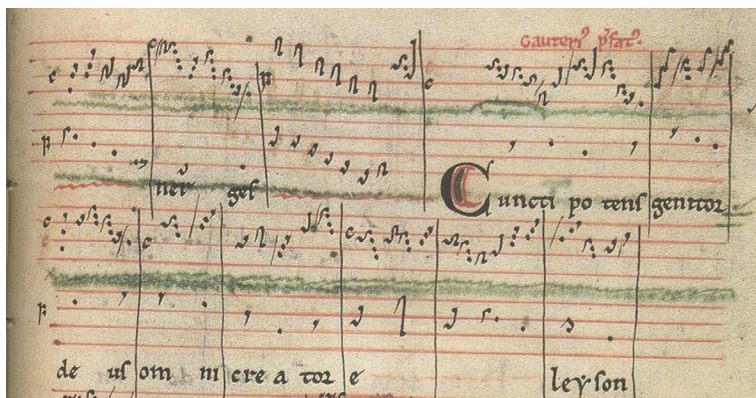 Gauteri⁹ p̄fat⁹.
ner ges Cuncti po tens genitor
de us om ni cre a tor e ley son